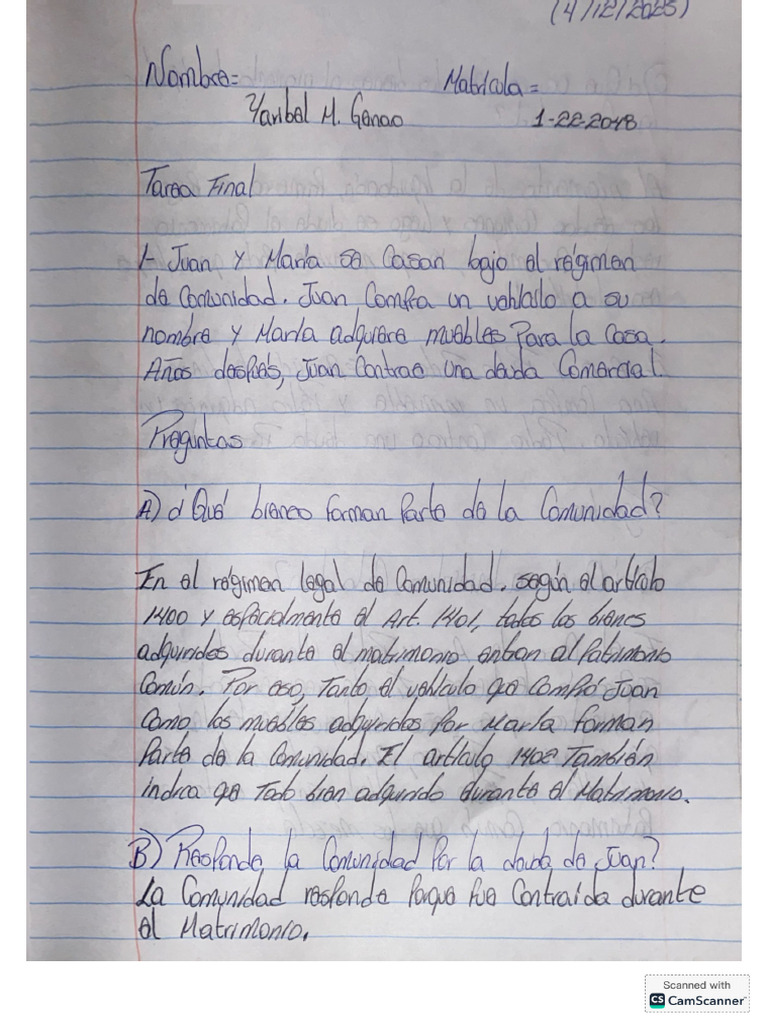 (4/12/2025)
Nombre= Matrícula=
Yaribel M. Genao 1-22-2048
Tarea Final
1- Juan y María se Casan bajo el régimen
de Comunidad. Juan Compra un vehículo a su
nombre y María adquiere muebles Para la Casa.
Años después, Juan Contrae una deuda Comercial.
Preguntas
A) ¿Qué bienes Forman Parte de la Comunidad?
En el régimen legal de Comunidad. según el artículo
1400 y especialmente el Art. 1401, todos los bienes
adquirides durante el matrimonio entran al Patrimonio
Común. Por eso, Tanto el vehículo que Compró Juan
Como los muebles adquiridos por María Forman
Parte de la Comunidad. El artículo 1402 También
indica qe Todo bien adquirido durante el Matrimonio.
B) Responde la Comunidad Por la deuda de Juan?
La Comunidad responde Porque fue Contraída durante
el Matrimonio.
Scanned with
CS CamScanner